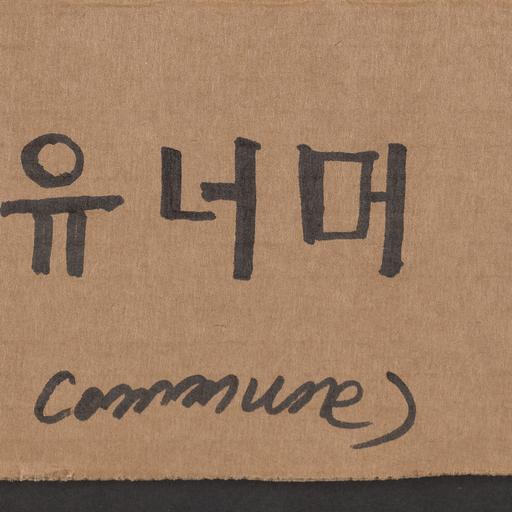 유너머
Commune)